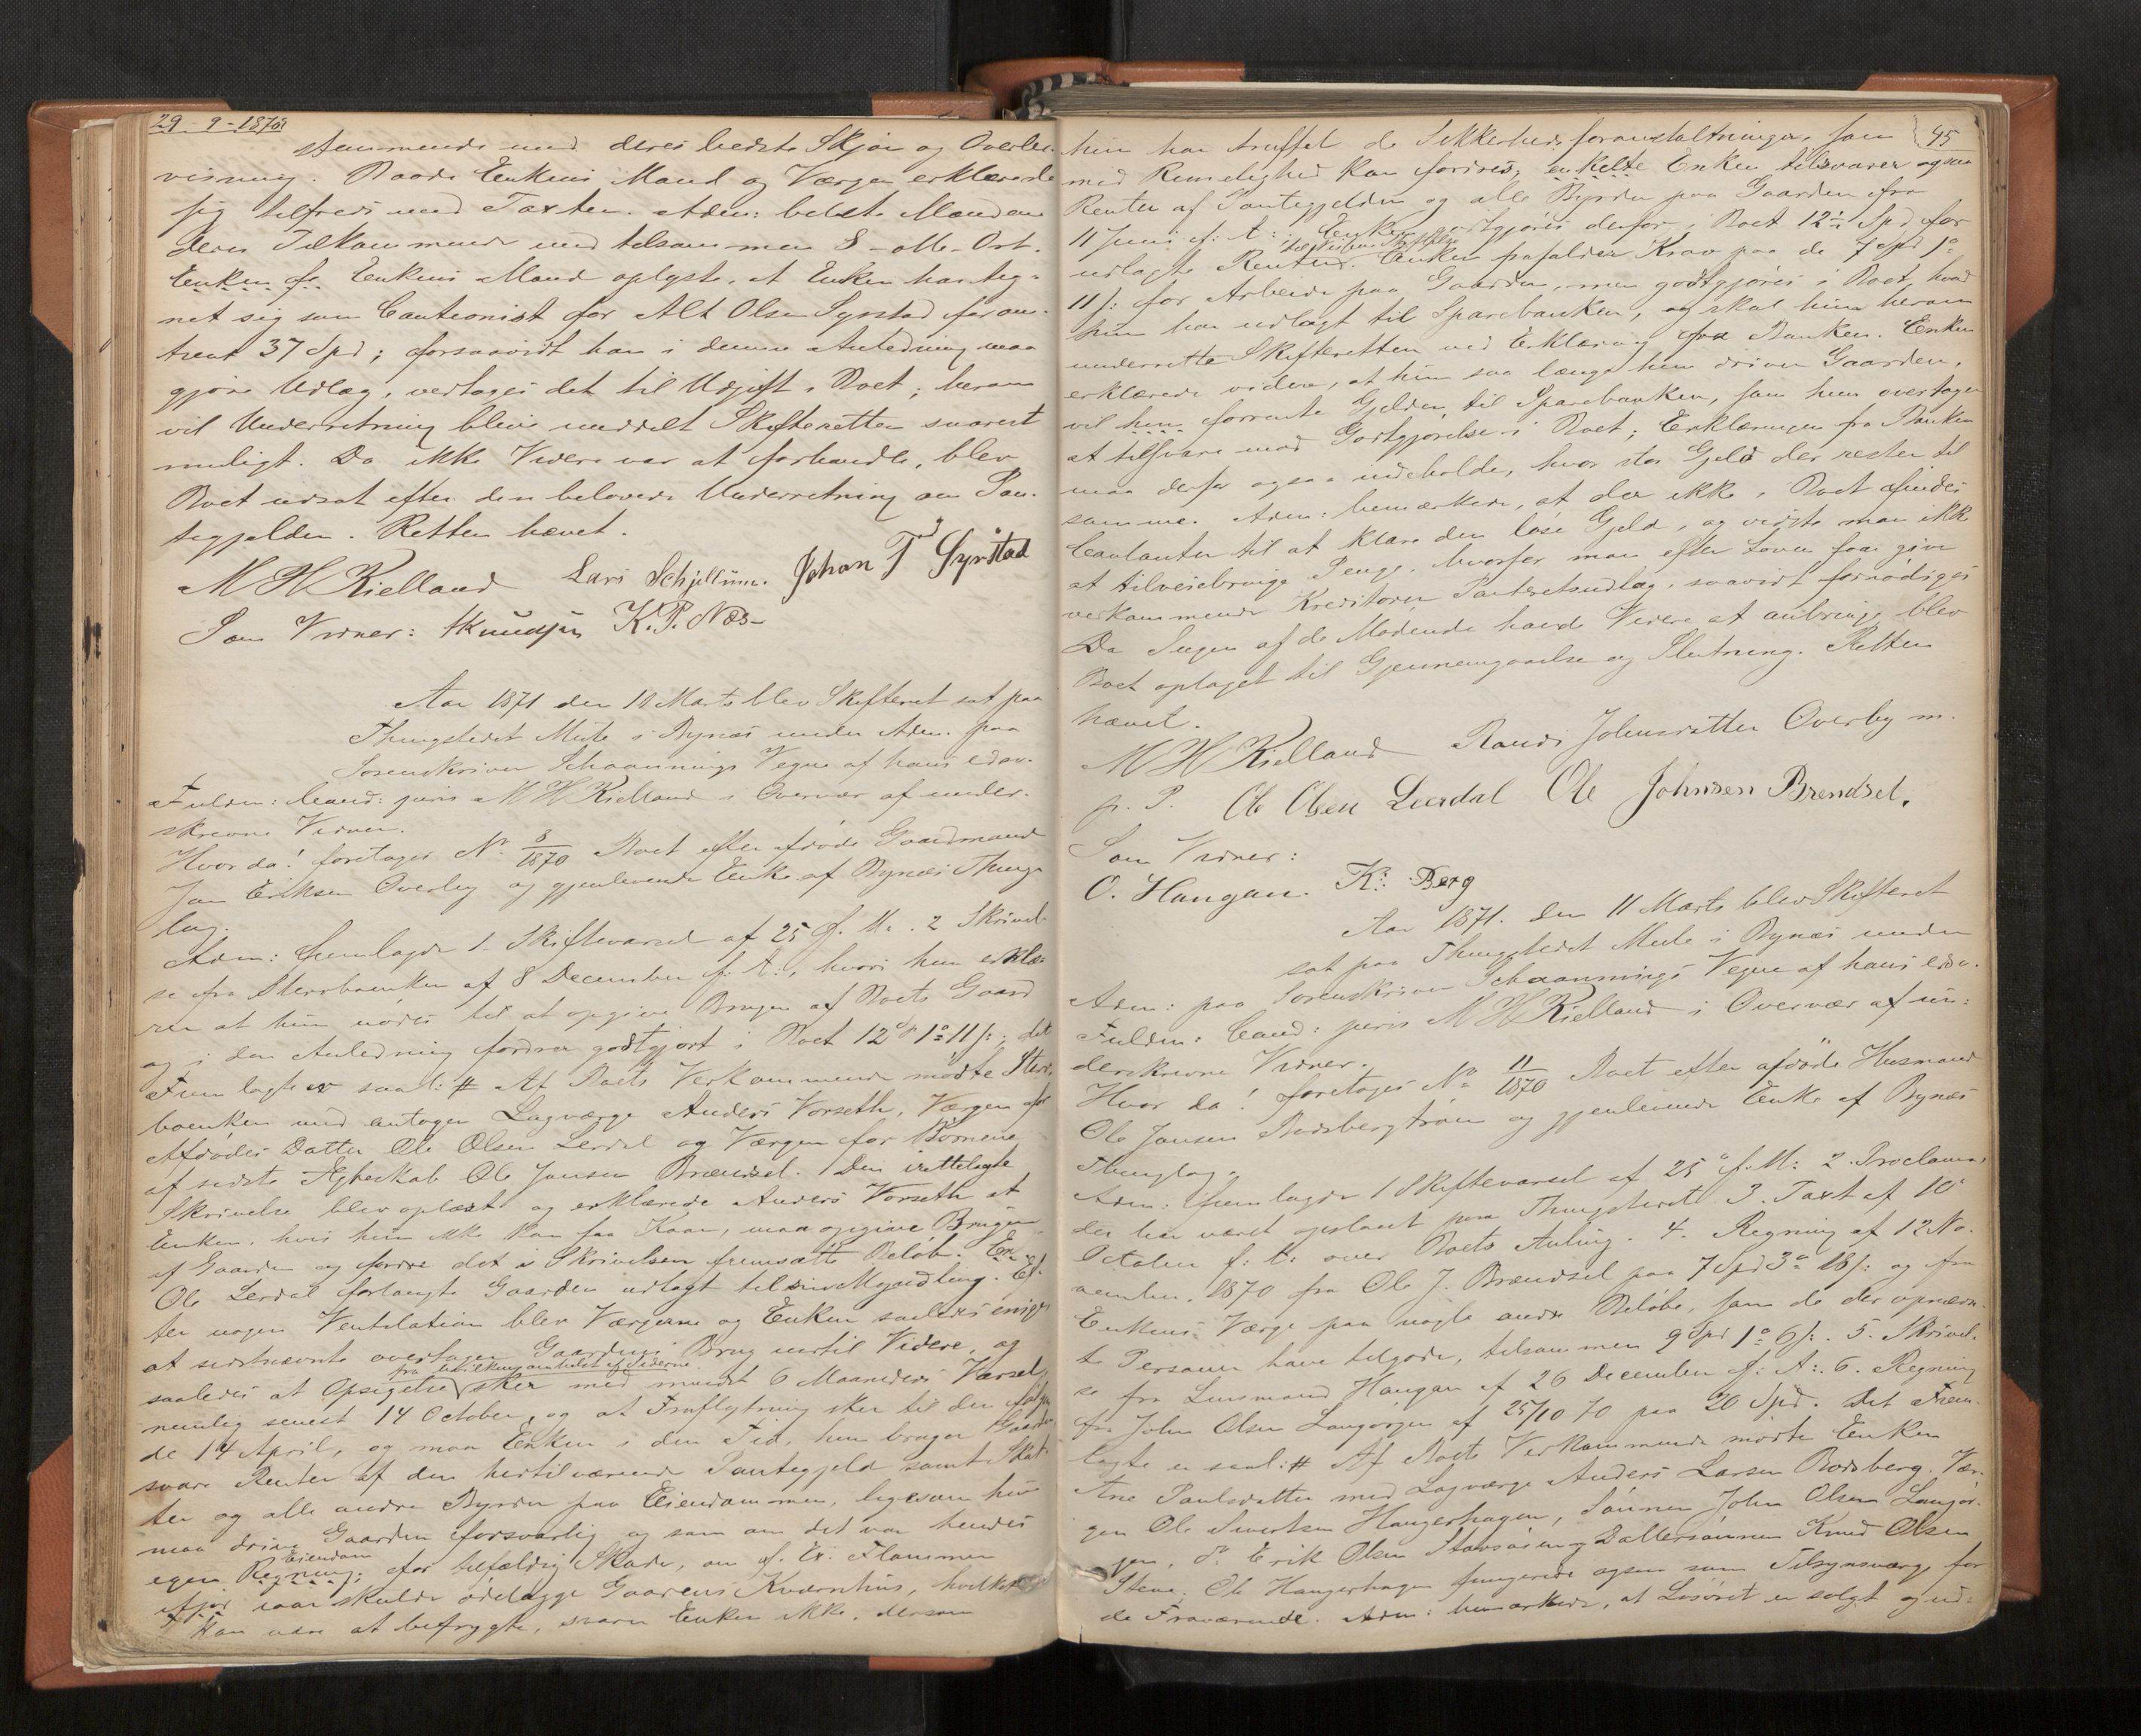 29-9-1870
stemmende med deres bedste Skjøn og Overbe-
visning. Baade Enkens Mand og Værgen erklærede
sig tilfreds med Taxten. Adm: belste Mændene
deres Tilkommende med tilsammen 8 - otte - Ort.
Enken gf. Enkens Mand oplyste, at Enken har teg-
net sig som Cautionist for Alt Olsen Syrstad for om-
trent 37 Spd; forsaavidt han i denne Anledning maa
gjøre Udlæg, vedtages det til Udgift i Boet; herom
vil Underretning blive meddelt Skifteretten snarest
muligt. Da ikke Videre var at forhandle, blev
Boet udsat efter den belovede Underretning om Pan-
tegjelden. Retten hævet.
M H Kielland Lars Schjellum. Johan T Syrstad
Som Vidner: AKnudsen K. P. Næs
Aar 1871 den 11 Marts blev Skifteret sat paa
Thingstedet Mule i Bynæs under Adm. paa
Sorenskriver Schaannings Vegne af hans edsv.
Fuldm: Cand: juris M H Kielland i Overvær af under-
skrevne Vidner.
Hvor da! foretoges No 8/1870 Boet efter afdøde Gaardmand
Jon Eriksen Overby og gjenlevende Enke af Bynæs Thing-
lag.
Adm: fremlagde 1. Skiftevarsel af 25 f. M. 2 Skrivel-
se fra Stervboenken af 8 December f: A:, hvori hun erklæ-
rer at hun nødes til at opgive Brugen af Boets Gaard
og i den Anledning fordrer godtgjort i Boet 12 Spd 1 o 11 s:; det
Fremlagte er saal: # Af Boets Vedkommende mødte Sterv-
boenken med antagen Lagværge Anders Vorseth, Værgen for
Afdødes Datter Ole Olsen Lerdal og Værgen for Børnene
af sidste Ægteskab Ole Jonsen Brændsel. Den irettelagte
Skrivelse blev oplæst og erklærede Anders Vorseth at
Enken, hvis hun ikke kan faa Kaar, maa opgive Brugen
af Gaarden og fordre det i Skrivelsen fremsatte Beløb. En
Ole Lerdal forlangte Gaarden udlagt til sin Myndling. Ef-
ter nogen Ventilation blev Værgerne og Enken saaledes enige
at sidstnævnte overtager Gaardens Brug indtil Videre, og
fra hvilkensomhelst af Siderne.
saaledes at Opsigelse sker med mindst 6 Maaneders Varsel,
nemlig senest 14 October, og at Fraflytning sker til den følgen-
de 14 April, og maa Enken i den Tid, hun bruger Gaarden
svare Renter af den hertilværende Pantegjeld samt Skat-
ter og alle andre Byrder paa Eiendommen, ligesom hun
maa drive Gaarden forsvarlig og som om det var hendes
Eiendom
egen Regning; for tilfældig Skade, om f. Ex. Flommen
iaar skulde ødelægge Gaardens Kværnhus, hvilket
kan være at befrygte, svarer Enken ikke, dersom
45
hun har truffet de Sikkerhedsforanstaltninger, som
med Rimelighed kan fordres, enkelte Enken tilsvarer ogsaa
Renter af Pantegjelden og alle Byrder paa Gaarden fra
11 Juni f: A:. Enken godtgjøres derfor i Boet 12 1/2 Spd for
udlagte Renter. Enken frafalder Krav paa de 7 Spd 1 o
11 s: for Arbeide paa Gaarden, men godtgjøres i Boet, hvad
hun har udlagt til Sparebanken, og skal hun herom
underrette Skifteretten ved Erklæring fra Banken. Enken
erklærede videre, at hun saa længe hun driver Gaarden,
vil hun forrente Gjelden til Sparebanken, som hun overtager
at tilsvare mod Godtgjørelse i Boet; Erklæringen fra Banken
maa derfor ogsaa indeholde, hvor stor Gjeld der rester til
samme. Adm: bemærkede, at der ikke i Boet findes
Contanter til at klare den løse Gjeld, og vidste man ikke
at tilveiebringe Penge, hvorfor man efter Loven faar give
vedkommende Kreditorer Panteretsudlæg, saavidt fornødiges
Da Ingen af de Mødende havde Videre at anbringe blev
Boet optaget til Gjennemgaaelse og Slutning. Retten
hævet.
M H Kielland Randi Johnsdatter Overby m.
p. P. Ole Olsen Leerdal Ole Johnsen Brendsel.
Som Vidner:
O. Haugan. K: Berg
Aar 1871. den 11 Marts blev Skifteret
sat paa Thingstedet Mule i Bynæs under
Adm: paa Sorenskriver Schaannings Vegne af hans edsv.
Fuldm: Cand: juris M H Kielland i Overvær af un-
derskrevne Vidner.
Hvor da! foretoges No 11/1870 Boet efter afdøde Husmand
Ole Jonsen Rodsbergtrøen og gjenlevende Enke af Bynæs
Thinglag.
Adm: fremlagde 1 Skiftevarsel af 25 f. M: 2. Proclama
der har været opslaaet paa Thingstedet 3. Taxt af 10
October f: A: over Boets Avling. 4. Regning af 12 No-
vember 1870 fra Ole J. Brændsel paa 7 Spd 3 o 18 s: og fra
Enkens Værge paa nogle andre Beløbe, som de der opnævn-
te Personer have tilgode, tilsammen 9 Spd 1 o 6 s:. 5. Skrivel-
se fra Lensmand Haugan af 26 December f: A:. 6. Regning
fra John Olsen Langørgen af 25/10 70 paa 20 Spd. Det Frem-
lagte er saal: # Af Boets Vedkommende mødte Enken
Ane Paulsdatter med Lagværge Anders Larsen Rodsberg. Vær-
gen Ole Sivertsen Haugerhagen, Sønnen John Olsen Langør-
gen, do Erik Olsen Stavsøien og Dattersønnen Knud Olsen
Stene; Ole Haugerhagen fungerede ogsaa som Tilsynsværge for
de Fraværende. Adm: bemærkede, at Løsøret er solgt og ud-